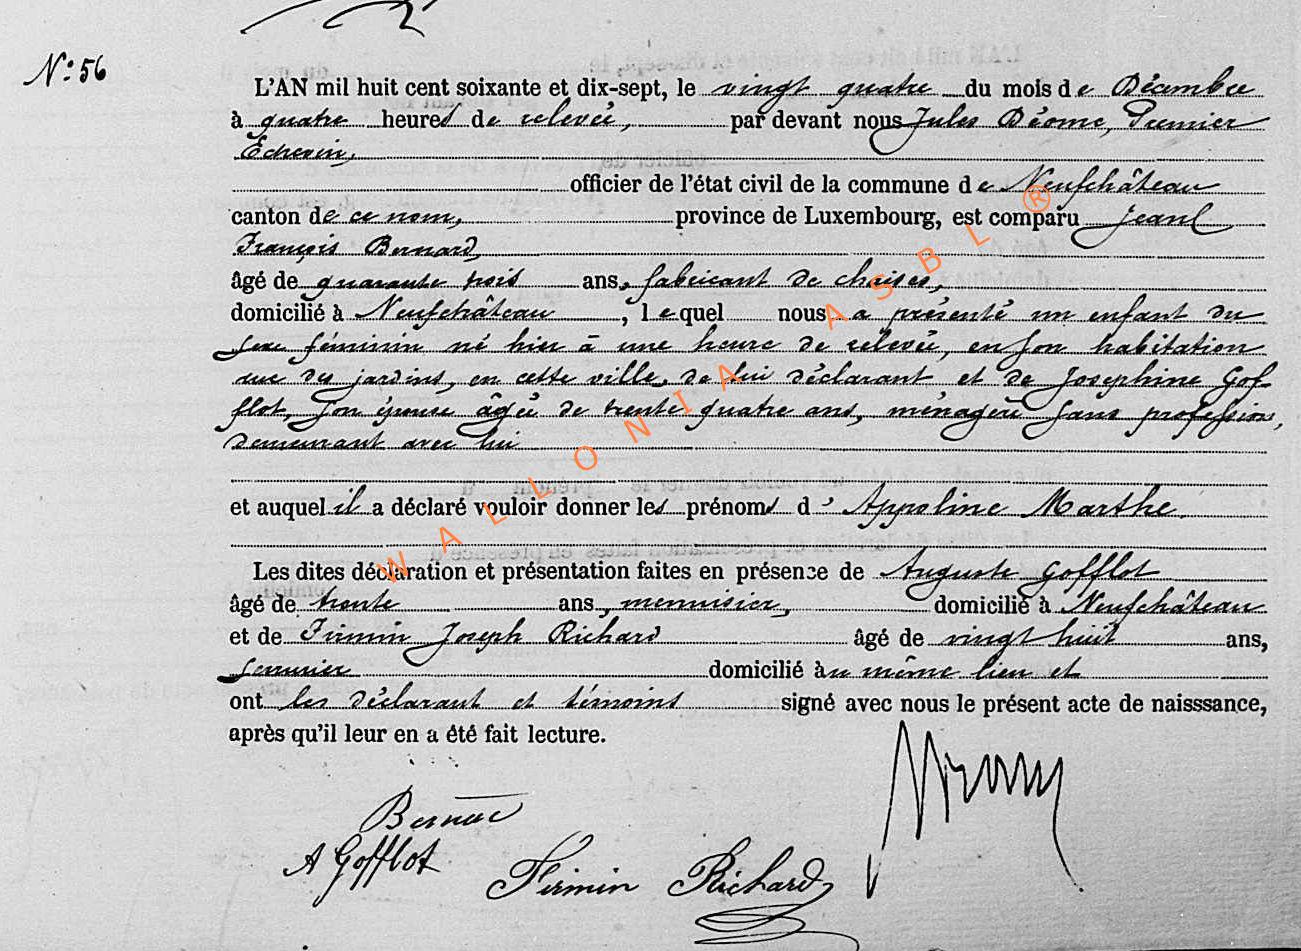 N° 56
L'AN mil huit cent soixante et dix-sept, le vingt quatre du mois de Décembre
à quatre heures de relevée, par devant nous Jules Déome, Premier
Echevin,
officier de l'état civil de la commune de Neufchâteau
canton de ce nom, province de Luxembourg, est comparu Jean
François Bernard,
âgé de quarante trois ans, fabricant de chaises,
domicilié à Neufchâteau, lequel nous a présenté un enfant du
sexe féminin né hier à une heure de relevée, en son habitation
rue des jardins, en cette ville, de lui déclarant et de Josephine Gof-
flot, son épouse âgée de trente quatre ans, ménagère sans profession,
demeurant avec lui
et auquel il a déclaré vouloir donner les prénoms d' Appoline Marthe
Les dites déclaration et présentation faites en présence de Auguste Gofflot
âgé de trente ans, menuisier, domicilié à Neufchâteau
et de Firmin Joseph Richard âgé de vingt huit ans,
serrurier domicilié au même lieu et
ont les déclarant et témoins signé avec nous le présent acte de naisssance,
après qu'il leur en a été fait lecture.
A Gofflot
Firmin Richard
WALLONIA ASBL ®